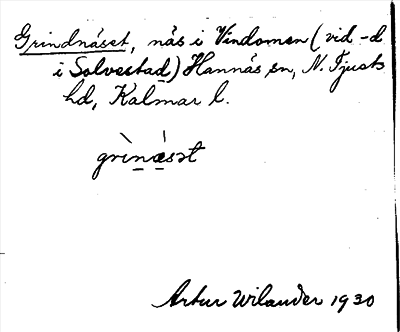 Grindnäset, näs i Vindomen (vid -d
i Solvestad) Hannäs sn, N. Tjusts
hd, Kalmar l.
grìnǽsət
Artur Wilander 1930